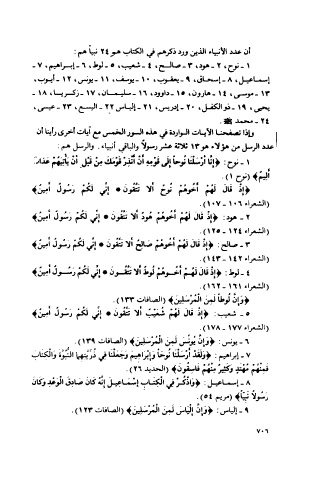 أن عدد الأنبياء الذين ورد ذكرهم في الكتاب هو ٢٤ نبياً هم :
١ - نوح، ٢ - هود، ٣ - صالح، ٤ - شعيب، ٥ - لوط، ٦ - إبراهيم، ٧ -
إسماعيل، ٨ - إسحاق، ٩ - يعقوب، ١٠ - يوسف، ١١ - يونس، ١٢ - أيوب،
١٣ - موسى، ١٤ - هارون، ١٥ - داوود، ١٦ - سليمان، ١٧ - زكريا، ١٨ -
يحيى، ١٩ - ذو الكفل، ٢٠ - إدريس، ٢١ - إلياس، ٢٢ - اليسع، ٢٣ - عيسى،
٢٤ - محمد ﷺ .
وإذا تصفحنا الآيات الواردة في هذه السور الخمس مع آيات أخرى رأينا أن
عدد الرسل من هؤلاء هو ١٣ ثلاثة عشر رسولاً والباقي أنبياء. والرسل هم :
١ - نوح : ﴿إِنَّا أَرْسَلْنَا نُوحاً إِلَى قَوْمِهِ أَنْ أَنْذِرْ قَوْمَكَ مِنْ قَبْلِ أَنْ يَأْتِيَهُمْ عَذَابٌ
أَلِيمٌ﴾ (نوح ١).
﴿إِذْ قَالَ لَهُمْ أَخُوهُمْ نُوحٌ أَلَا تَتَّقُونَ * إِنِّي لَكُمْ رَسُولٌ أَمِينٌ﴾
(الشعراء ١٠٦ - ١٠٧).
٢ - هود : ﴿إِذْ قَالَ لَهُمْ أَخُوهُمْ هُودٌ أَلَا تَتَّقُونَ * إِنِّي لَكُمْ رَسُولٌ أَمِينٌ﴾
(الشعراء ١٢٤ - ١٢٥).
٣ - صالح : ﴿إِذْ قَالَ لَهُمْ أَخُوهُمْ صَالِحٌ أَلَا تَتَّقُونَ * إِنِّي لَكُمْ رَسُولٌ أَمِينٌ﴾
(الشعراء ١٤٢ - ١٤٣).
٤ - لوط : ﴿إِذْ قَالَ لَهُمْ أَخُوهُمْ لُوطٌ أَلَا تَتَّقُونَ * إِنِّي لَكُمْ رَسُولٌ أَمِينٌ﴾
(الشعراء ١٦١ - ١٦٢).
﴿وَإِنَّ لُوطاً لَمِنَ الْمُرْسَلِينَ﴾ (الصافات ١٣٣).
٥ - شعيب : ﴿إِذْ قَالَ لَهُمْ شُعَيْبٌ أَلَا تَتَّقُونَ * إِنِّي لَكُمْ رَسُولٌ أَمِينٌ﴾
(الشعراء ١٧٧ - ١٧٨).
٦ - يونس : ﴿وَإِنَّ يُونُسَ لَمِنَ الْمُرْسَلِينَ﴾ (الصافات ١٣٩).
٧ - إبراهيم : ﴿وَلَقَدْ أَرْسَلْنَا نُوحاً وَإِبْرَاهِيمَ وَجَعَلْنَا فِي ذُرِّيَّتِهِمَا النُّبُوَّةَ وَالْكِتَابَ
فَمِنْهُمْ مُهْتَدٍ وَكَثِيرٌ مِنْهُمْ فَاسِقُونَ﴾ (الحديد ٢٦).
٨ - إسماعيل : ﴿وَاذْكُرْ فِي الْكِتَابِ إِسْمَاعِيلَ إِنَّهُ كَانَ صَادِقَ الْوَعْدِ وَكَانَ
رَسُولاً نَبِيّاً﴾ (مريم ٥٤).
٩ - إلياس : ﴿وَإِنَّ إِلْيَاسَ لَمِنَ الْمُرْسَلِينَ﴾ (الصافات ١٢٣).
٧٠٦